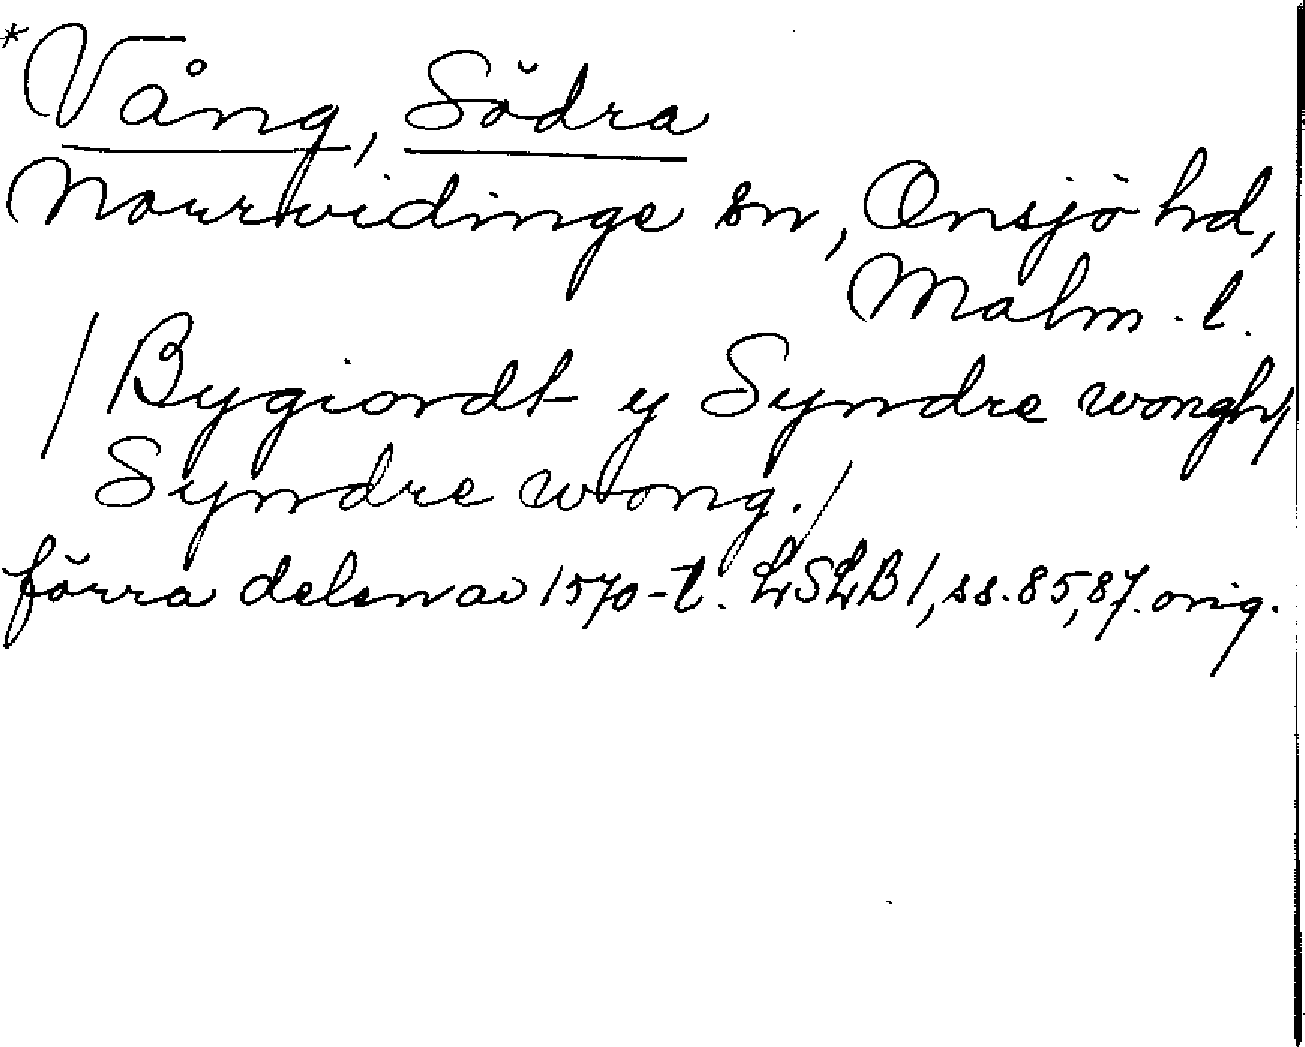 *Vång, Södra
Norrvidinge sn, Onsjö hd,
Malm. l.
/Bygiordt y Syndre wongh,
Syndre wong./
förra delen av 1570-t. LSLB 1, ss. 85, 87. orig.